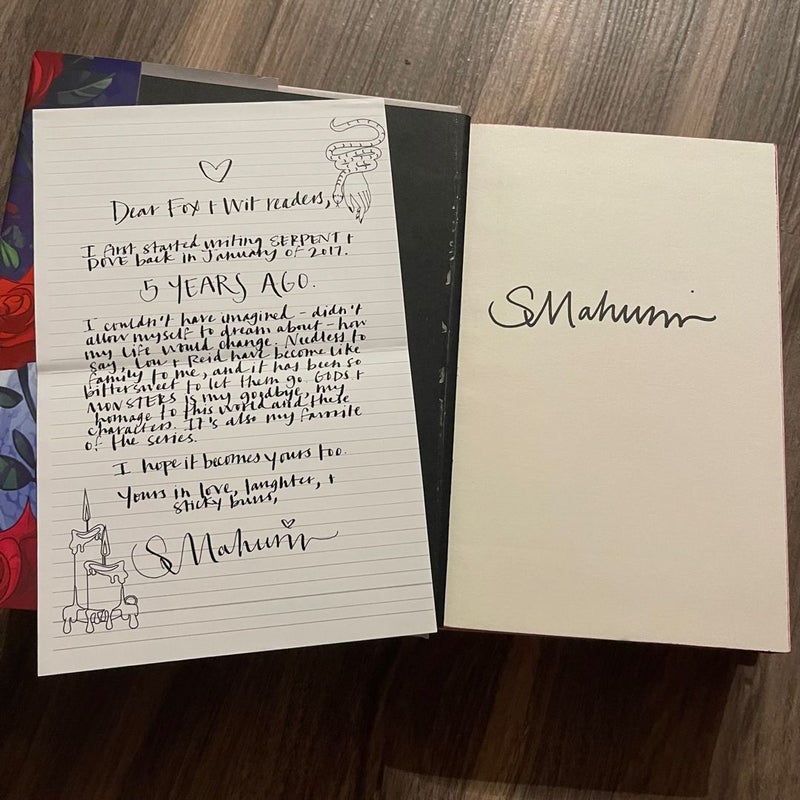 Dear Fox + Wit readers,
I first started writing SERPENT +
DOVE back in January of 2017.
5 YEARS AGO.
I couldn't have imagined - didn't
allow myself to dream about - how
my life would change. Needless to
say, Lou + Reid have become like
family to me, and it has been so
bittersweet to let them go. GODS +
MONSTERS is my goodbye, my
homage to this world and these
characters. It's also my favorite
of the series.
I hope it becomes yours too.
Yours in love, laughter, +
sticky buns,
S Mahurin
S Mahurin